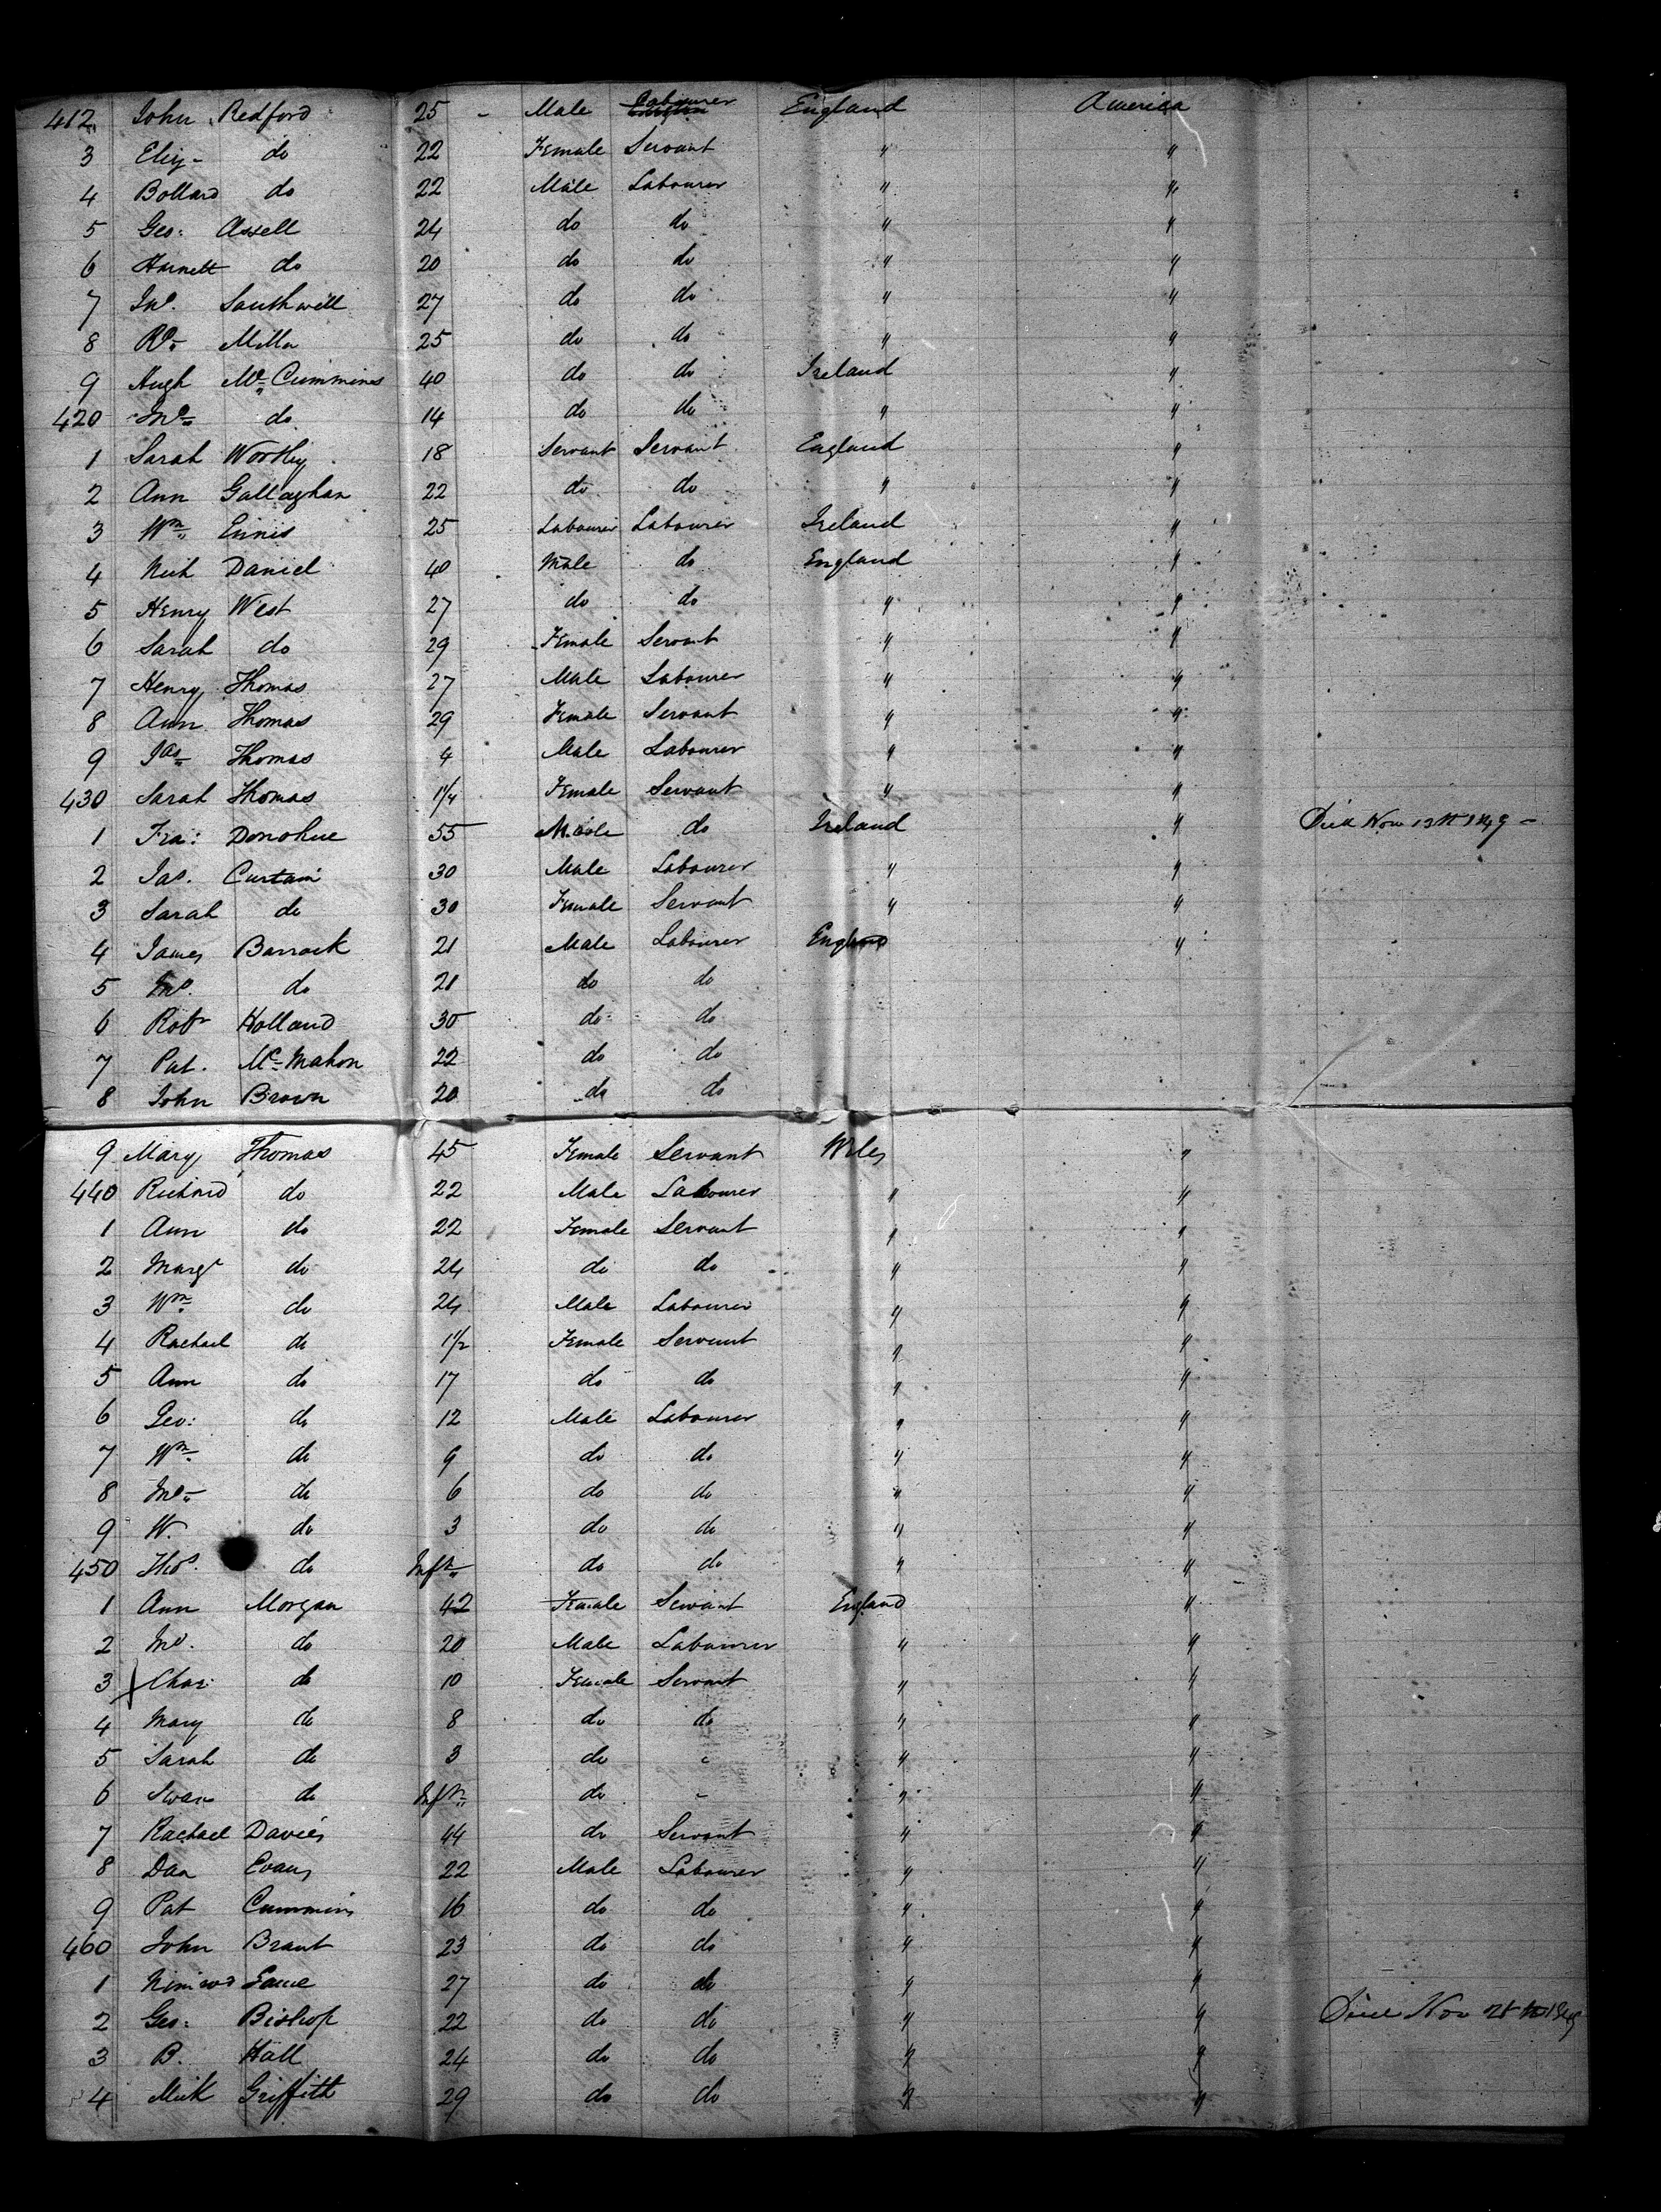 412 John Redford 25 - Male Labourer England America
3 Eliz- do 22 Female Servant " "
4 Bollard do 22 Male Labourer " "
5 Geo: Assell 24 do do " "
6 Harnett do 20 do do " "
7 Jno. Southwell 27 do do " "
8 Rd Miller 25 do do " "
9 Hugh Mc Cummins 40 do do Ireland "
420 Jno do 14 do do " "
1 Sarah Worthy 18 Servant Servant England "
2 Ann Gallaghan 22 do do " "
3 Wm Ennis 25 Labourer Labourer Ireland "
4 Nich Daniel 40 Male do England "
5 Henry West 27 do do " "
6 Sarah do 29 Female Servant " "
7 Henry Thomas 27 Male Labourer " "
8 Ann Thomas 29 Female Servant " "
9 Jas Thomas 4 Male Labourer " "
430 Sarah Thomas 1/4 Female Servant " "
1 Fra: Donohue 55 Male do Ireland " Died Nov 13th 1849 -
2 Jas. Curtain 30 Male Labourer " "
3 Sarah do 30 Female Servant " "
4 James Barrack 21 Male Labourer England "
5 Jno. do 21 do do
6 Robt Holland 30 do do
7 Pat. Mc Mahon 22 do do
8 John Brown 20 do do
9 Mary Thomas 45 Female Servant Wles "
440 Richard do 22 Male Labourer " "
1 Ann do 22 Female Servant " "
2 Margt do 24 do do " "
3 Wm do 24 Male Labourer " "
4 Rachael do 1 1/2 Female Servant " "
5 Ann do 17 do do " "
6 Geo: do 12 Male Labourer " "
7 Wm do 9 do do " "
8 Jno do 6 do do " "
9 W. do 3 do do " "
450 Thos. do Inft do do " "
1 Ann Morgan 42 Female Servant England "
2 Jno. do 20 Male Labourer " "
3 Chas: do 10 Female Servant " "
4 Mary do 8 do do " "
5 Sarah do 3 do " " "
6 do Inft do " " "
7 Rachael Davies 44 do Servant " "
8 Dan Evans 22 Male Labourer " "
9 Pat Cummins 16 do do " "
460 John Brant 23 do do " "
1 Nimrod Lane 27 do do " "
2 Geo: Bishop 22 do do " " Died Nov 28th 1849
3 B. Hall 24 do do " "
4 Mick Griffith 29 do do " "